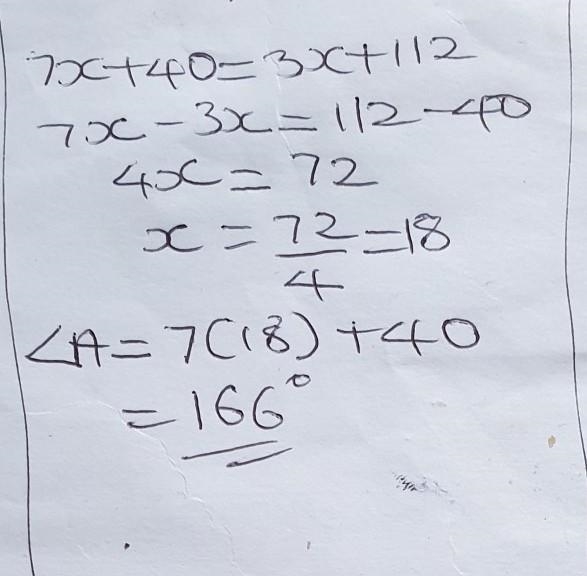 7x+40=3x+112
7x-3x=112-40
4x=72
x=72/4=18
∠A=7(18)+40
=166°